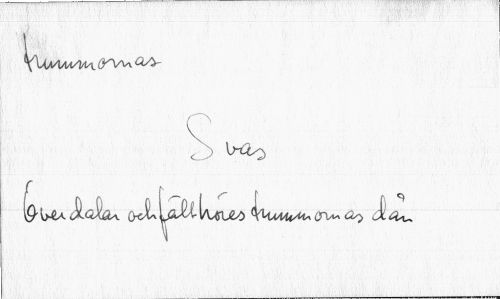 trummornas
Svas
Över dalar och fält höres trummornas dån